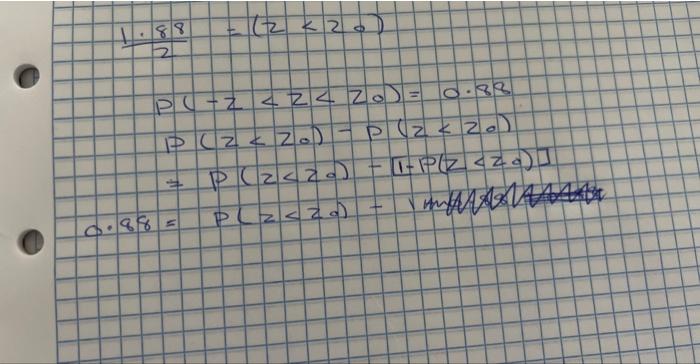 1.88/2 = (Z < Z0)
P(-Z < Z < Z0) = 0.88
P(Z < Z0) - P(Z < Z0)
= P(Z < Z0) - [1-P(Z < Z0)]
0.88 = P(Z < Z0) - 1